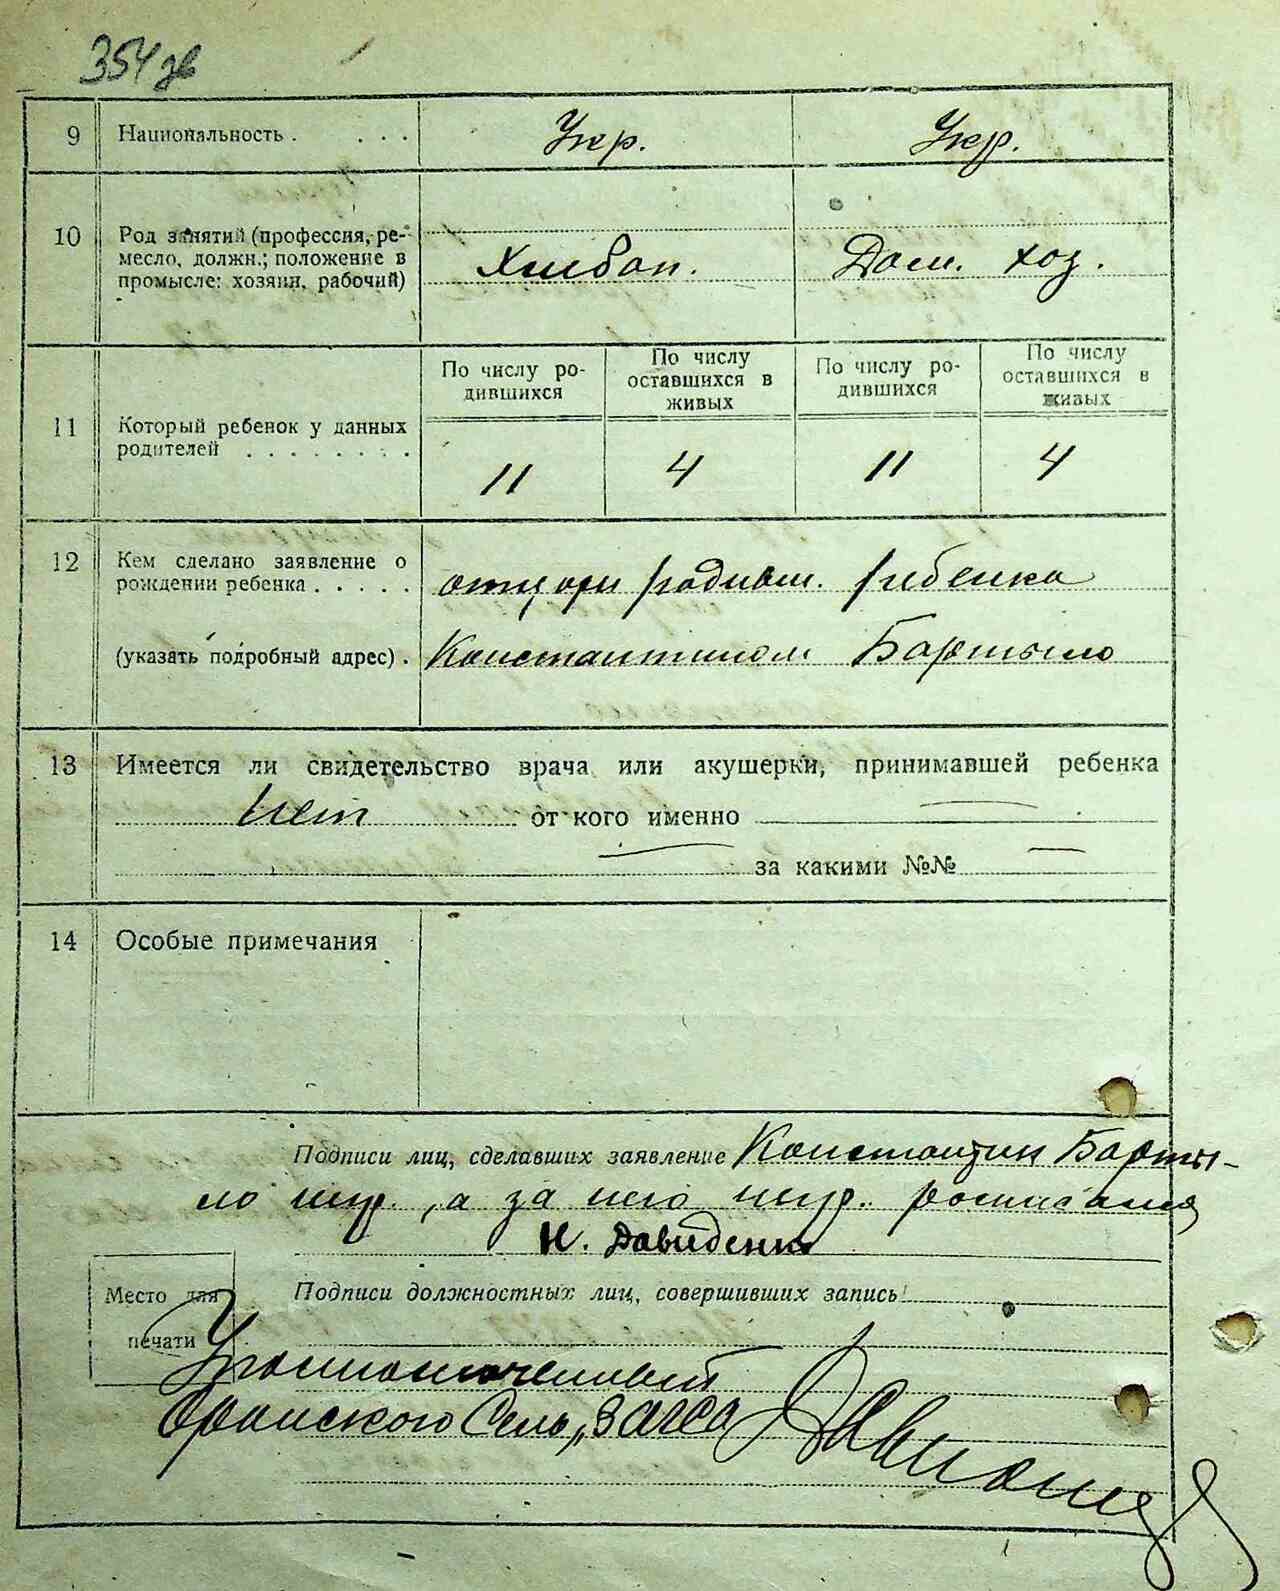 354 зв
9 Национальность . . . . Укр. Укр.
10 Род занятий (профессия, ре-
месло, должн.; положение в
промысле: хозяин, рабочий) Хлебоп. Дом. хоз.
11 Который ребенок у данных
родителей . . . . . . . .
По числу ро-
дившихся
По числу
оставшихся в
живых
По числу ро-
дившихся
По числу
оставшихся в
живых
11 4 11 4
12 Кем сделано заявление о
рождении ребенка . . . . . отцом ребенка
(указать подробный адрес) . Константином Бартыло
13 Имеется ли свидетельство врача или акушерки, принимавшей ребенка
Нет от кого именно —
— за какими №№ —
14 Особые примечания
Подписи лиц, сделавших заявление Константин Барты-
ло негр., а за него негр.
Н. Давиденко
Место для
печати
Подписи должностных лиц, совершивших запись
Уполномоченный
Сель „Загса